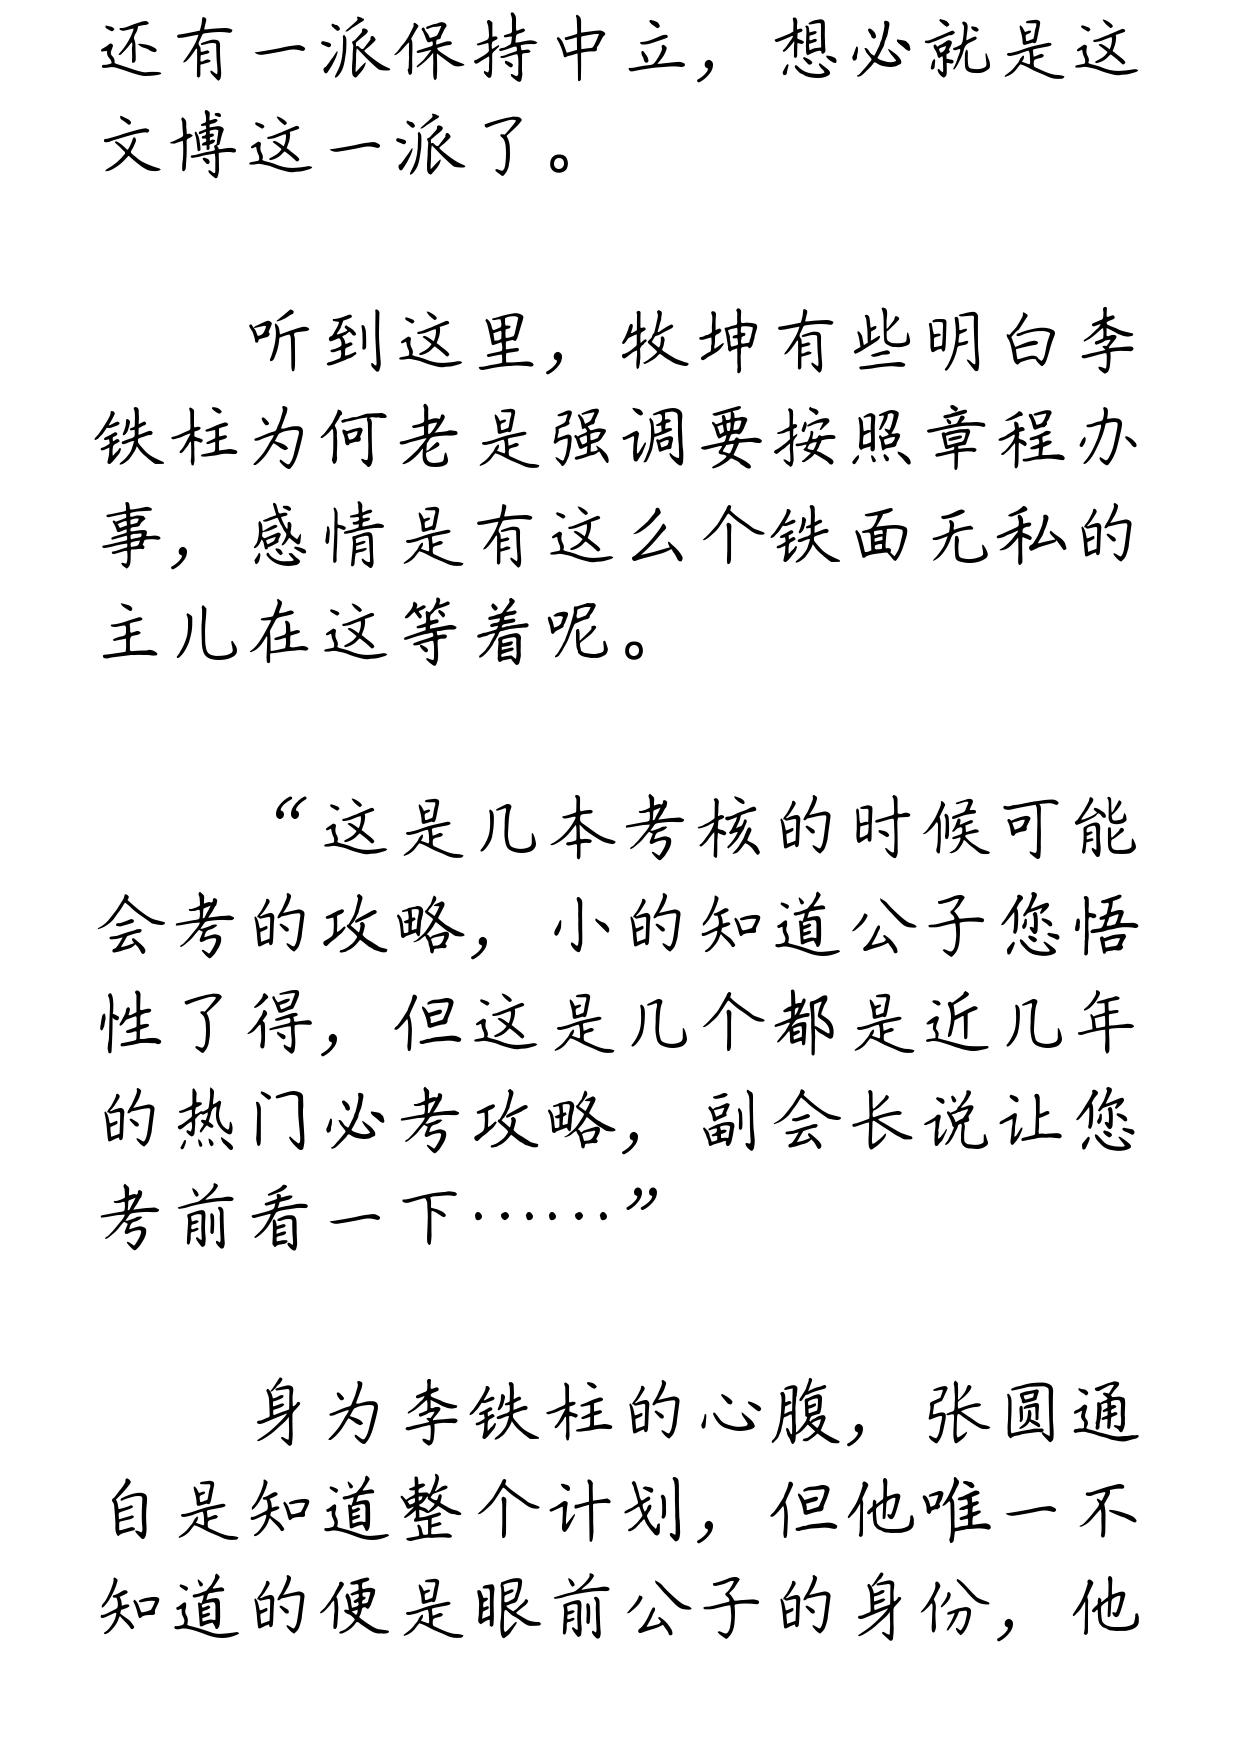 还有一派保持中立，想必就是这
文博这一派了。
听到这里，牧坤有些明白李
铁柱为何老是强调要按照章程办
事，感情是有这么个铁面无私的
主儿在这等着呢。
“这是几本考核的时候可能
会考的攻略，小的知道公子您悟
性了得，但这是几个都是近几年
的热门必考攻略，副会长说让您
考前看一下……”
身为李铁柱的心腹，张圆通
自是知道整个计划，但他唯一不
知道的便是眼前公子的身份，他